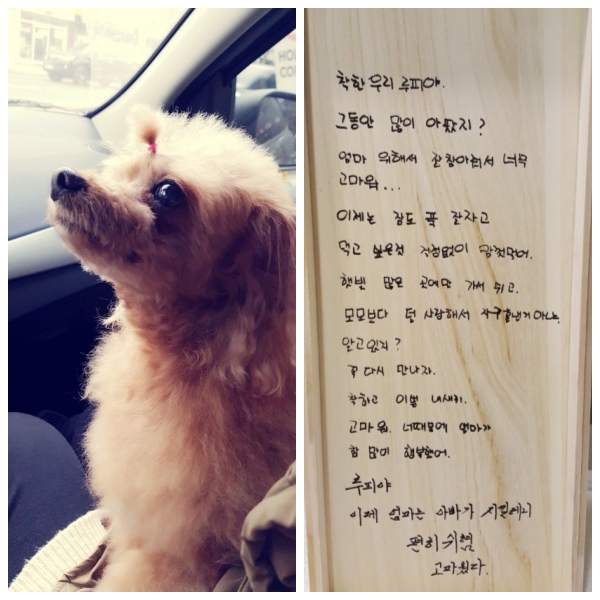 착한 우리 루피야.
그동안 많이 아팠지?
엄마 위해서 잘 참아줘서 너무
고마워...
이제는 잠도 푹 잘자고
먹고 싶은것 걱정없이 맘껏먹어.
햇빛 많은 곳에만 가서 쉬고.
모모보다 덜 사랑해서 자꾸 혼낸거 아냐.
알고 있지?
꼭 다시 만나자.
착하고 이쁜 내새끼.
고마워. 너때문에 엄마가
참 많이 행복했어.
루피야
이제 엄마는 아빠가 지킬테니
편히 쉬렴
고마웠다.